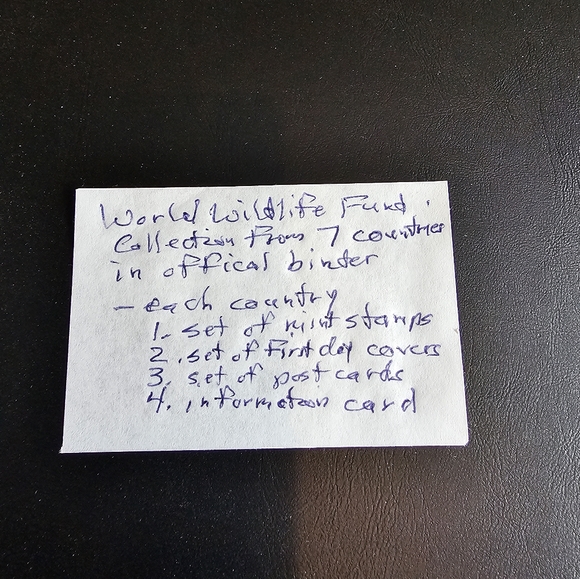 World Wildlife Fund.
Collection from 7 countries
in offical binder
- each country
1. set of mint stamps
2. set of First day covers
3. set of post cards
4. information card